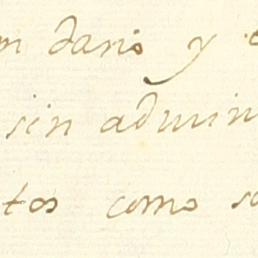 m dario y
sin admin
tos como so